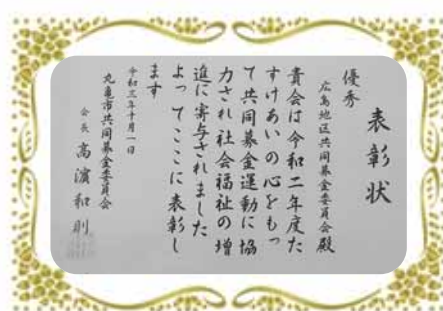 表彰状
優秀
広島地区共同募金委員会殿
貴会は令和二年度た
すけあいの心をもっ
て共同募金運動に協
力され社会福祉の増
進に寄与されました
よってここに表彰し
ます
令和三年十月一日
丸亀市共同募金委員会
会長 高濱和則